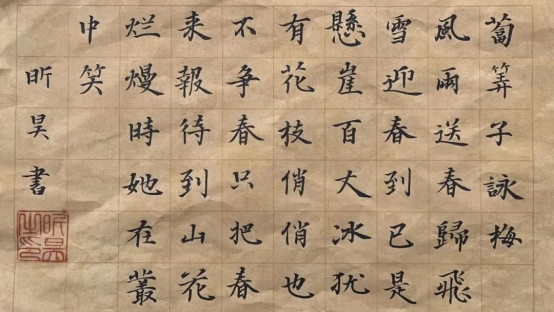 蔔筭子詠梅
風雨送春歸飛
雪迎春到已是
懸崖百丈冰犹
有花枝俏俏也
不争春只把春
来報待到山花
烂熳時她在叢
中笑
昕昊書
昕昊之印